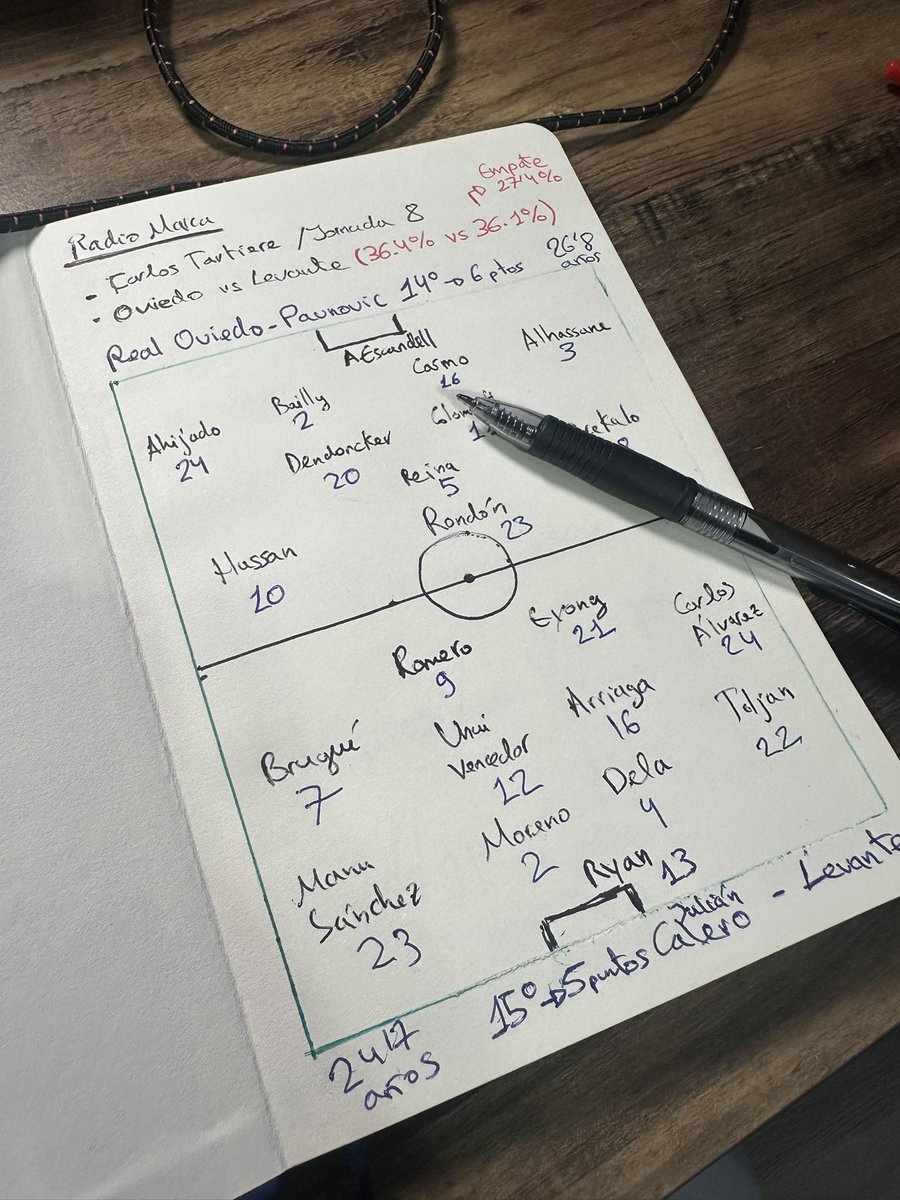 Radio Marca
Empate
27'4%
- Carlos Tartiere / Jornada 8
- Oviedo vs Levante (36.4% vs 36.1%)
26'8
años
Real Oviedo - Paunovic 14º → 6 ptos
A Escandell
Ahijado
24
Bailly
2
Cosmo
16
Alhassane
3
Dendoncker
20
Reina
5
Hassan
10
Rondón
23
Romero
9
Eyong
21
Carlos
Álvarez
24
Brugué
7
Unai
Vencedor
12
Arriaga
16
Toljan
22
Manu
Sánchez
23
Moreno
2
Dela
4
Ryan 13
15º → 5 puntos Julián Calero - Levante
24'7
años